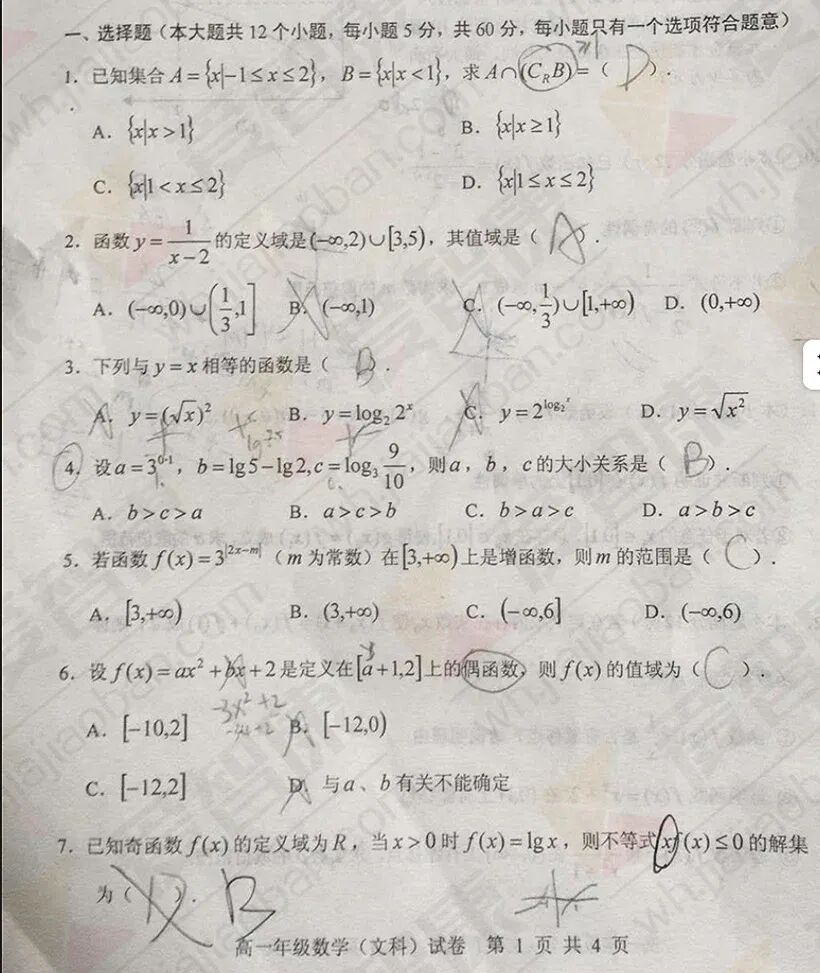 一、选择题（本大题共12个小题，每小题5分，共60分，每小题只有一个选项符合题意）
1. 已知集合 A={x|-1≤x≤2}，B={x|x<1}，求 A∩(C_R B)=（ D ）.
A. {x|x>1} B. {x|x≥1}
C. {x|1<x≤2} D. {x|1≤x≤2}
2. 函数 y=1/(x-2) 的定义域是(-∞,2)∪[3,5)，其值域是（ A ）.
A. (-∞,0)∪(1/3,1] B. (-∞,1) C. (-∞,1/3)∪[1,+∞) D. (0,+∞)
3. 下列与 y=x 相等的函数是（ B ）.
A. y=(√x)² B. y=log₂2ˣ C. y=2^(log₂x) D. y=√x²
4. 设 a=3^0.1，b=lg5-lg2, c=log₃ 9/10，则 a，b，c 的大小关系是（ B ）.
A. b>c>a B. a>c>b C. b>a>c D. a>b>c
5. 若函数 f(x)=3^|2x-m|（m 为常数）在[3,+∞)上是增函数，则 m 的范围是（ C ）.
A. [3,+∞) B. (3,+∞) C. (-∞,6] D. (-∞,6)
6. 设 f(x)=ax²+bx+2 是定义在[a+1,2]上的偶函数，则 f(x) 的值域为（ C ）.
-3x²+2
A. [-10,2] B. [-12,0)
C. [-12,2] D. 与 a、b 有关不能确定
7. 已知奇函数 f(x) 的定义域为 R，当 x>0 时 f(x)=lgx，则不等式 xf(x)≤0 的解集
为（ ）. B
高一年级数学（文科）试卷 第 1 页 共 4 页